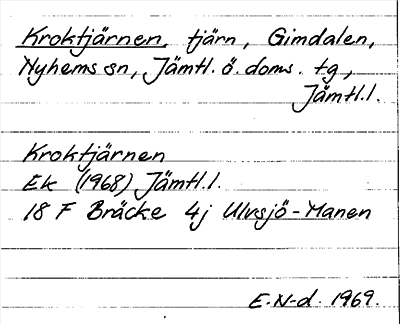 Kroktjärnen, tjärn, Gimdalen,
Nyhems sn, Jämtl. ö. doms. tg,
Jämtl.l.
Kroktjärnen
Ek (1968) Jämtl.l.
18 F Bräcke 4j Ulvsjö-Manen
E.N-d. 1969.